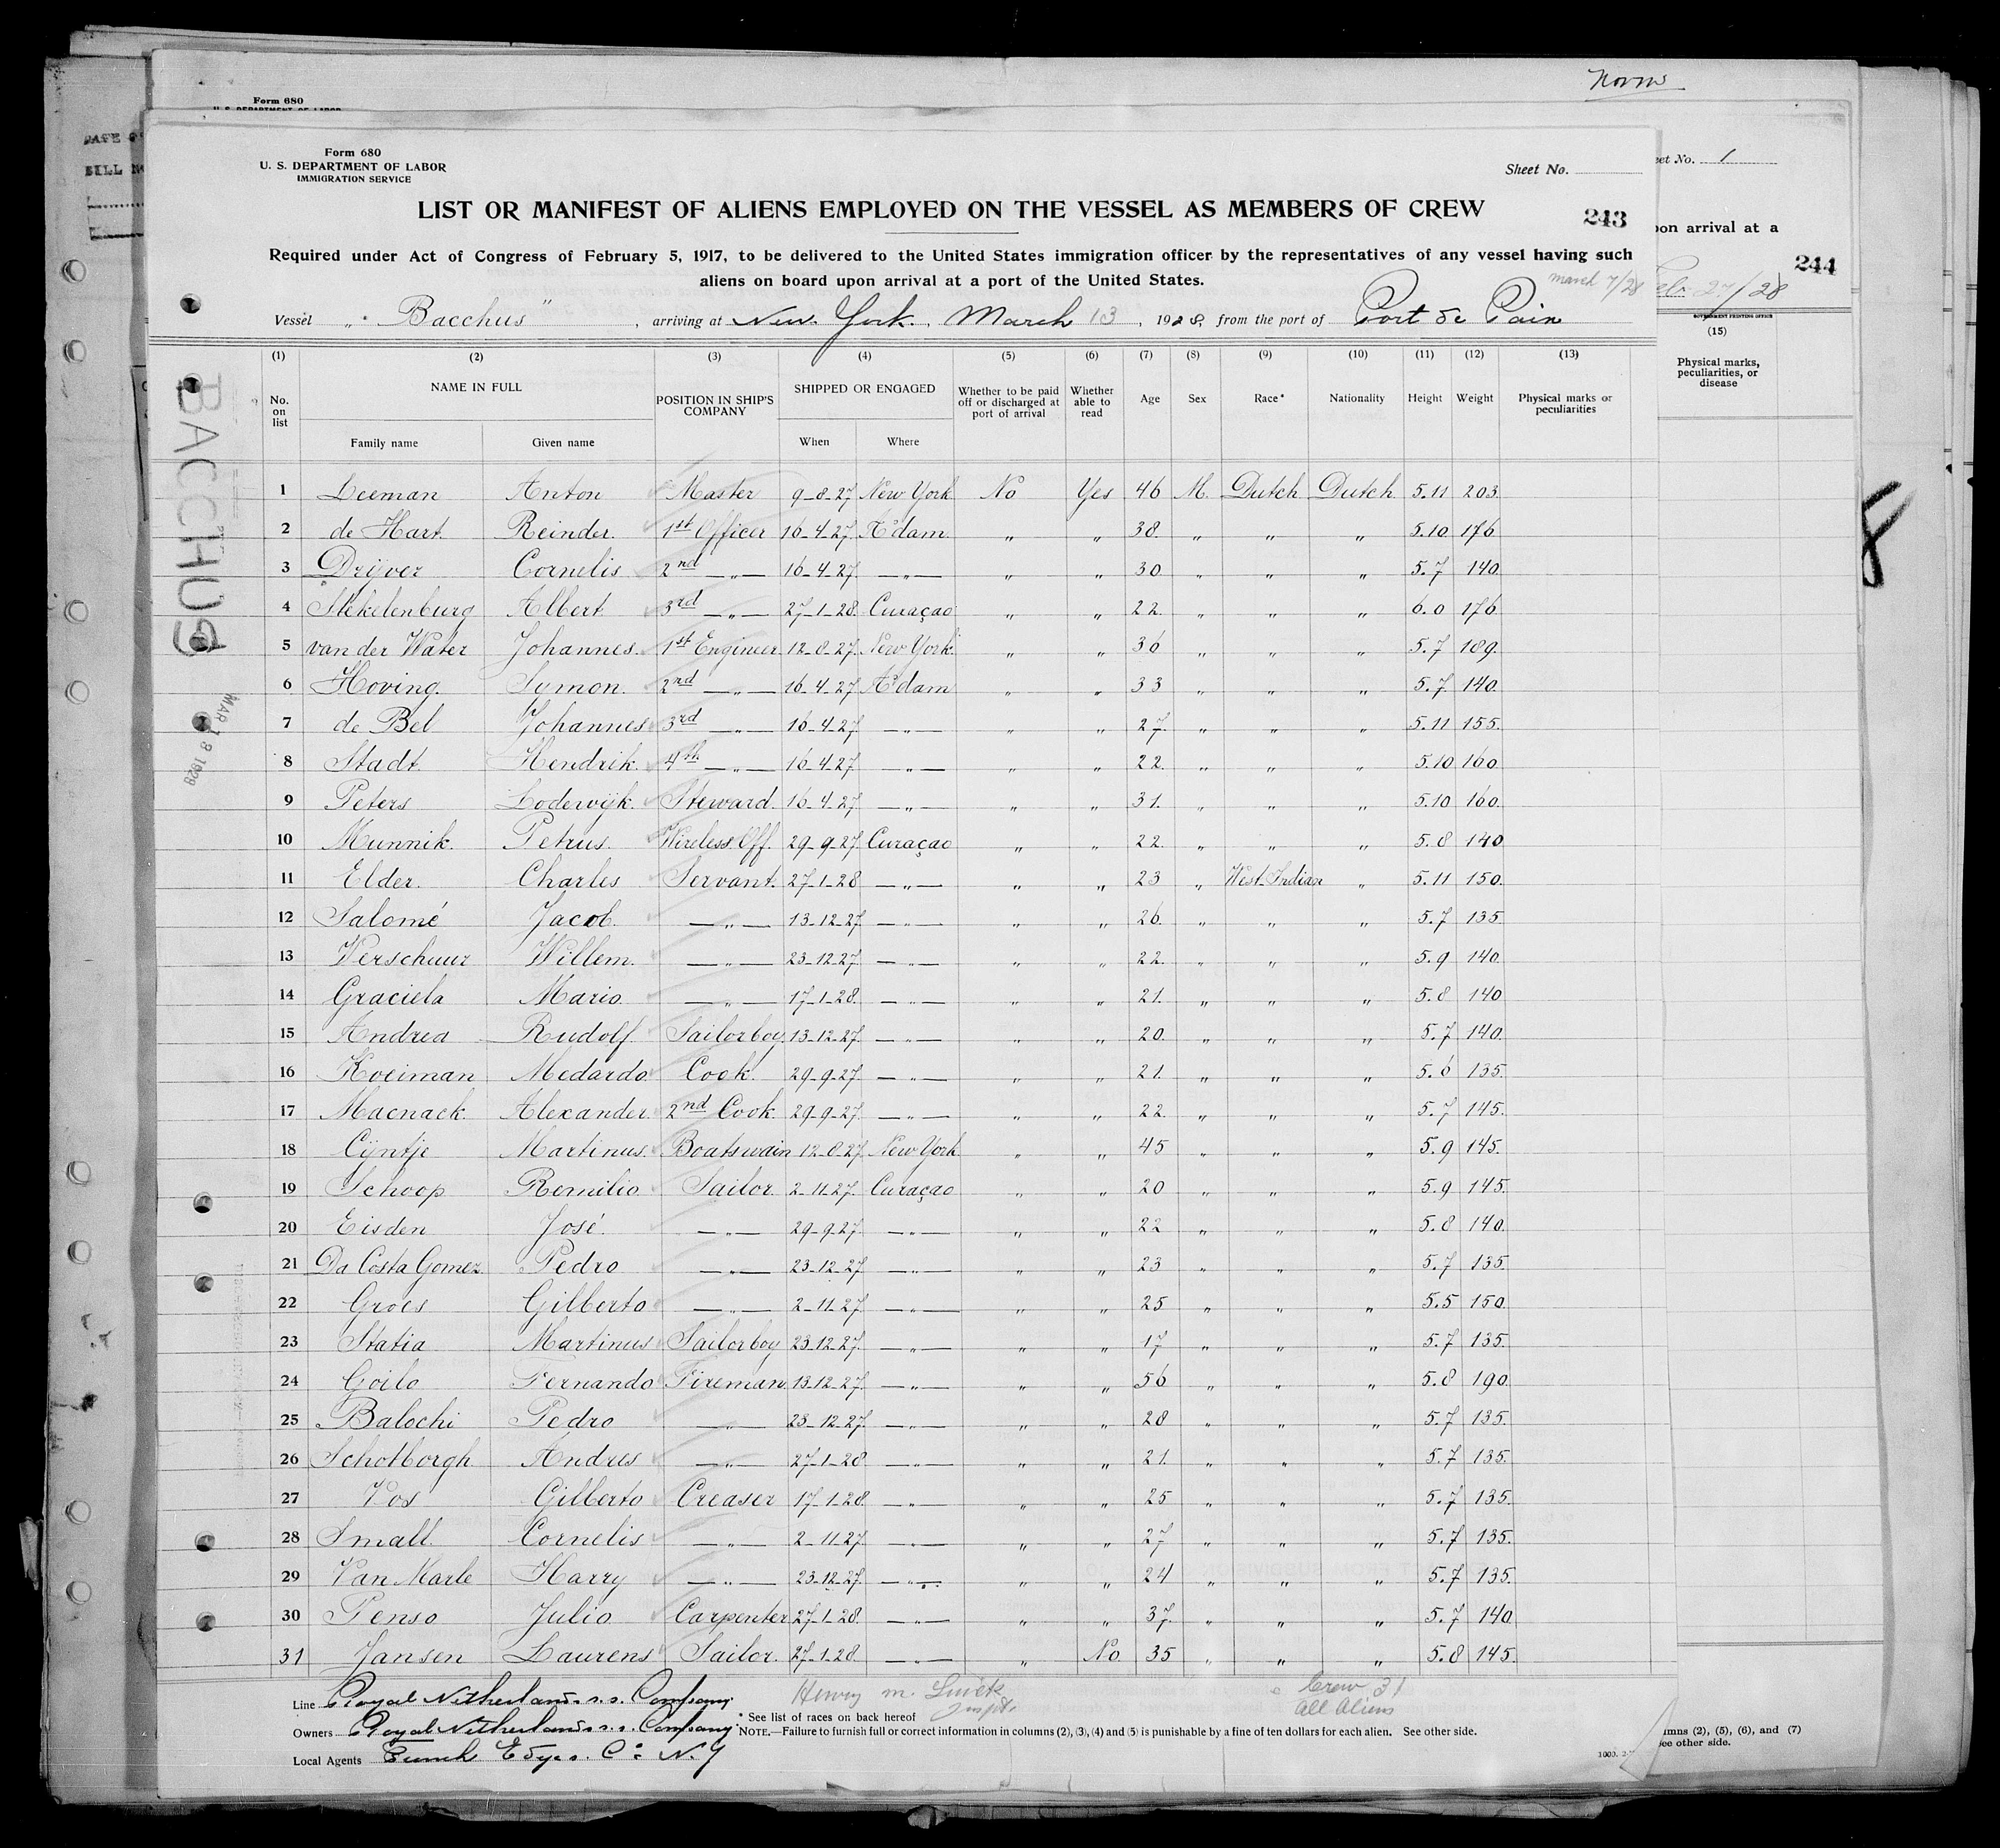 Norw
Form 680
Sheet No. 1
upon arrival at a
244
Feb. 27/28
(15)
Physical marks, peculiarities, or disease
Form 680
U. S. DEPARTMENT OF LABOR
IMMIGRATION SERVICE
Sheet No.
LIST OR MANIFEST OF ALIENS EMPLOYED ON THE VESSEL AS MEMBERS OF CREW
243
Required under Act of Congress of February 5, 1917, to be delivered to the United States immigration officer by the representatives of any vessel having such
aliens on board upon arrival at a port of the United States.
March 7/28
Vessel "Bacchus", arriving at New York, March 13, 1928, from the port of Port de Paix
(1) (2) (3) (4) (5) (6) (7) (8) (9) (10) (11) (12) (13)
No. on list NAME IN FULL Family name Given name POSITION IN SHIP'S COMPANY SHIPPED OR ENGAGED When Where Whether to be paid off or discharged at port of arrival Whether able to read Age Sex Race* Nationality Height Weight Physical marks or peculiarities
1 Leeman Anton Master 9-8-27 New York No Yes 46 M. Dutch Dutch 5.11 203
2 de Hart Reinder 1st Officer 16-4-27 A'dam " " 38 " " " 5.10 176
3 Drijver Cornelis 2nd —"— 16-4-27 —"— " " 30 " " " 5.7 140
4 Stekelenburg Albert 3rd —"— 27-1-28 Curaçao " " 22 " " " 6.0 176
5 van der Water Johannes 1st Engineer 12-8-27 New York " " 36 " " " 5.7 189
6 Hoving Symon 2nd —"— 16-4-27 A'dam " " 33 " " " 5.7 140
7 de Bel Johannes 3rd —"— 16-4-27 —"— " " 27 " " " 5.11 155
8 Stadt Hendrik 4th —"— 16-4-27 —"— " " 22 " " " 5.10 160
9 Peters Lodewijk Steward 16-4-27 —"— " " 31 " " " 5.10 160
10 Munnik Petrus Wireless Off. 29-9-27 Curaçao " " 22 " " " 5.8 140
11 Elder Charles Servant 27-1-28 —"— " " 23 " West Indian " 5.11 150
12 Salomé Jacob —"— 13-12-27 —"— " " 26 " " " 5.7 135
13 Verschuur Willem —"— 23-12-27 —"— " " 22 " " " 5.9 140
14 Graciela Mario —"— 17-1-28 —"— " " 21 " " " 5.8 140
15 Andrea Rudolf Sailorboy 13-12-27 —"— " " 20 " " " 5.7 140
16 Koeiman Medardo Cook 29-9-27 —"— " " 21 " " " 5.6 135
17 Macnack Alexander 2nd Cook 29-9-27 —"— " " 22 " " " 5.7 145
18 Cijntje Martinus Boatswain 12-8-27 New York " " 45 " " " 5.9 145
19 Schoop Romilio Sailor 2-11-27 Curaçao " " 20 " " " 5.9 145
20 Eisden José —"— 29-9-27 —"— " " 22 " " " 5.8 140
21 Da Costa Gomez Pedro —"— 23-12-27 —"— " " 23 " " " 5.7 135
22 Groes Gilberto —"— 2-11-27 —"— " " 25 " " " 5.5 150
23 Statia Martinus Sailorboy 23-12-27 —"— " " 17 " " " 5.7 135
24 Goilo Fernando Fireman 13-12-27 —"— " " 56 " " " 5.8 190
25 Balochi Pedro —"— 23-12-27 —"— " " 28 " " " 5.7 135
26 Schotborgh Andres —"— 27-1-28 —"— " " 21 " " " 5.7 135
27 Vos Gilberto Creaser 17-1-28 —"— " " 25 " " " 5.7 135
28 Small Cornelis —"— 2-11-27 —"— " " 27 " " " 5.7 135
29 Van Marle Harry —"— 23-12-27 —"— " " 24 " " " 5.7 135
30 Penso Julio Carpenter 27-1-28 —"— " " 37 " " " 5.7 140
31 Jansen Laurens Sailor 27-1-28 —"— " No 35 " " " 5.8 145
BACCHUS
Line Royal Netherlands s.s. Company
Owners Royal Netherlands s.s. Company
Local Agents Funch Edye & Co N.Y
Crew 31
All Aliens
* See list of races on back hereof
NOTE.—Failure to furnish full or correct information in columns (2), (3), (4) and (5) is punishable by a fine of ten dollars for each alien. See other side.
columns (2), (5), (6), and (7)
See other side.